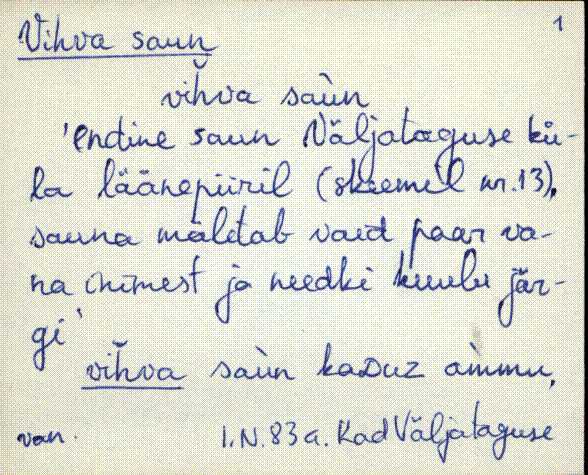 1
Vihva saun
vih̆va saùn
'endine saun Väljataguse kü-
la läänepiiril (skeemil nr.13),
sauna mäletab vaid paar va-
na inimest ja needki kuulu jär-
gi'
vih̆va saùn kaDuz àmmu,
van. I.N. 83 a. Kad Väljataguse